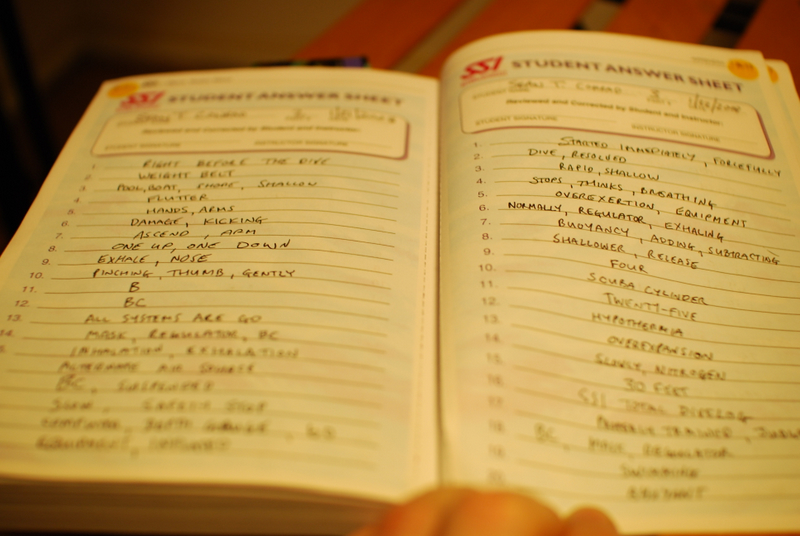 SSI STUDENT ANSWER SHEET
Reviewed and Corrected by Student and Instructor:
STUDENT SIGNATURE INSTRUCTOR SIGNATURE
1. RIGHT BEFORE THE DIVE
2. WEIGHT BELT
3. POOL, BOAT, SHORE, SHALLOW
4. FLUTTER
5. HANDS, ARMS
6. DAMAGE, KICKING
7. ASCEND, ARM
8. ONE UP, ONE DOWN
9. EXHALE, NOSE
10. PINCHING, THUMB, GENTLY
11. B
12. BC
13. ALL SYSTEMS ARE GO
14. MASK, REGULATOR, BC
INHALATION, EXHALATION
ALTERNATE AIR SOURCE
BC, SUSPENDED
SSI STUDENT ANSWER SHEET
SEAN T.
Reviewed and Corrected by Student and Instructor:
STUDENT SIGNATURE INSTRUCTOR SIGNATURE
1. STARTED IMMEDIATELY, FORCEFULLY
2. DIVE, RESOLVED
3. RAPID, SHALLOW
4. STOPS, THINKS, BREATHING
5. OVEREXERTION, EQUIPMENT
6. NORMALLY, REGULATOR, EXHALING
7. BUOYANCY, ADDING, SUBTRACTING
8. SHALLOWER, RELEASE
9. FOUR
10. SCUBA CYLINDER
11. TWENTY-FIVE
12. HYPOTHERMIA
13. OVEREXPANSION
14. SLOWLY, NITROGEN
15. 30 FEET
16. SSI TOTAL DIVELOG
17. TRAINER,
18. BC, MASK, REGULATOR
SWIMMING